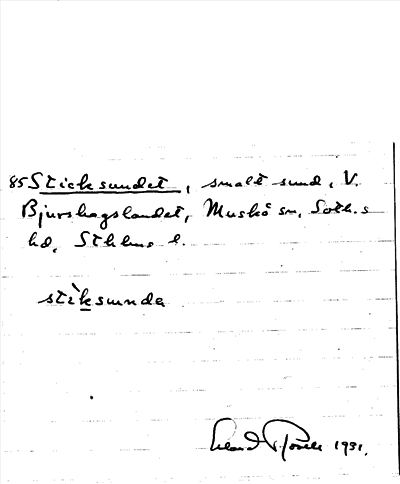 85 Sticksundet, smalt sund, V.
Bjurshagslandet, Muskö sn, Soth.s
hd, Sthlms l.
stìksunda
1931.